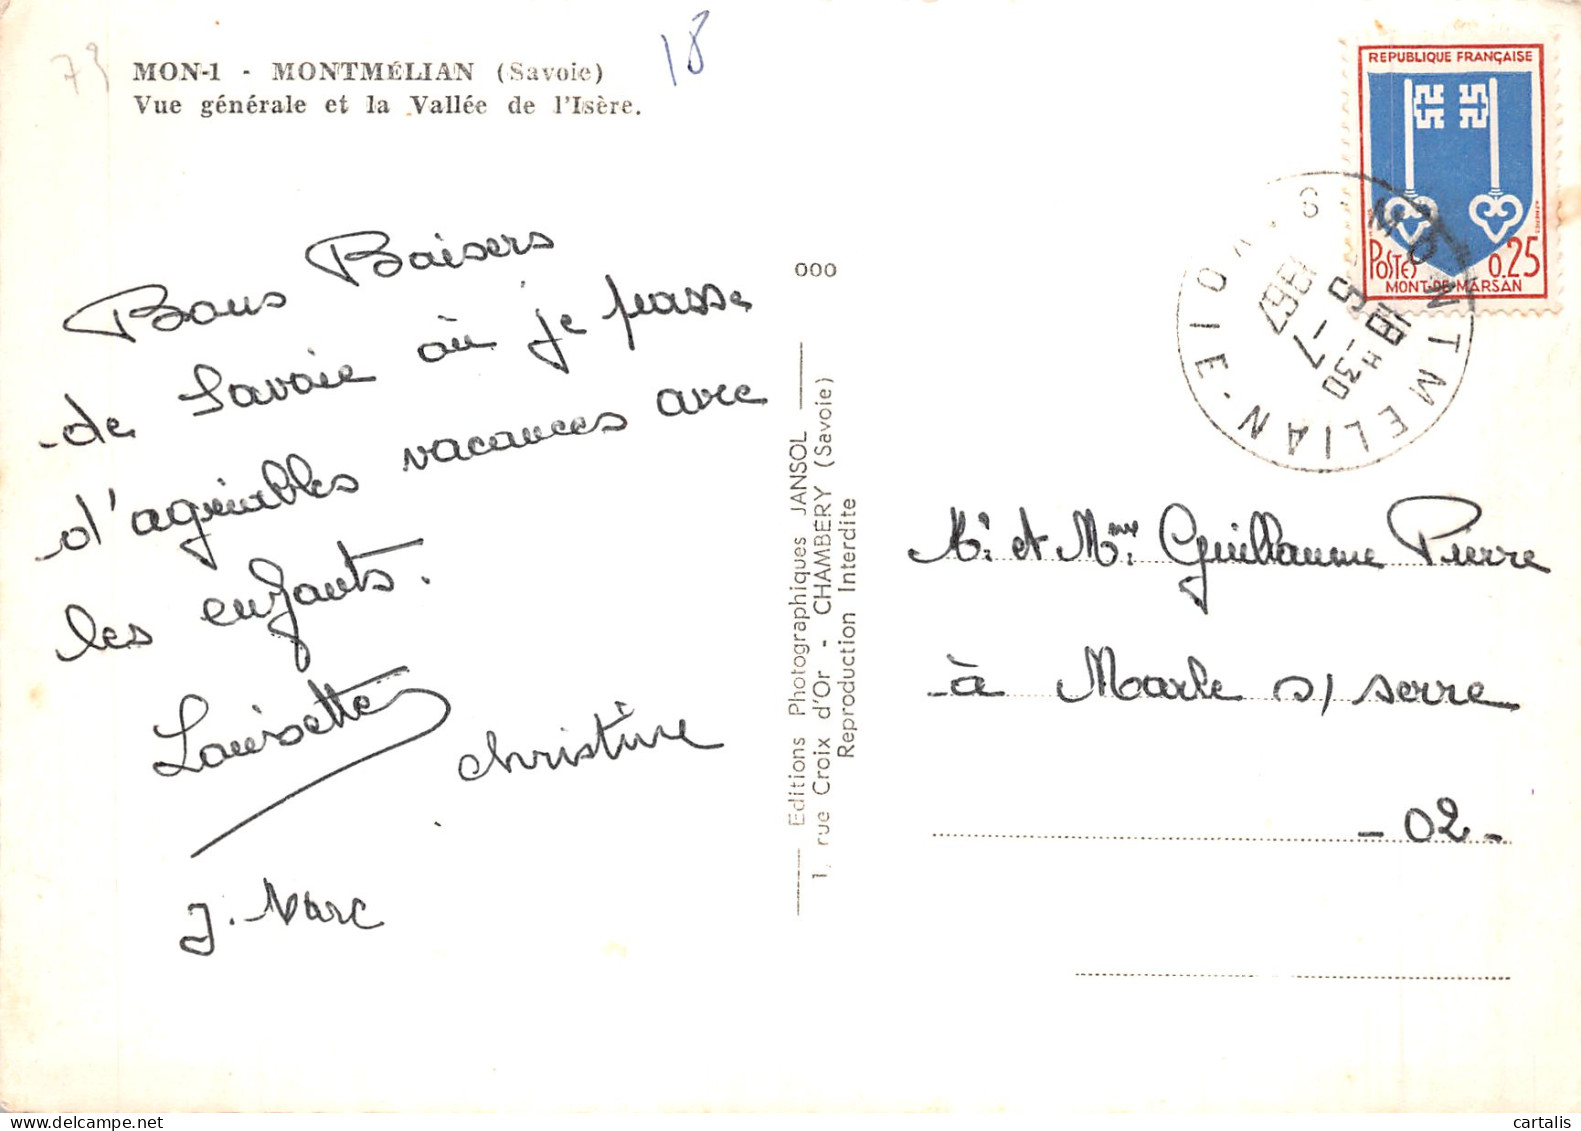 73
MON-1 - MONTMÉLIAN (Savoie)
Vue générale et la Vallée de l'Isère.
18
Bons Baisers
de Savoie où je passe
d'agréables vacances avec
les enfants.
Louisette
christine
J. Marc
000
Editions Photographiques JANSOL
1, rue Croix d'Or - CHAMBÉRY (Savoie)
Reproduction Interdite
REPUBLIQUE FRANÇAISE
POSTES 0.25
MONT-DE-MARSAN
MONTMELIAN · SAVOIE
18 H 30
5 - 7
1967
Mr. et Mme. Guillaume Pierre
à Marle s/ serre
- 02 -
cartalis